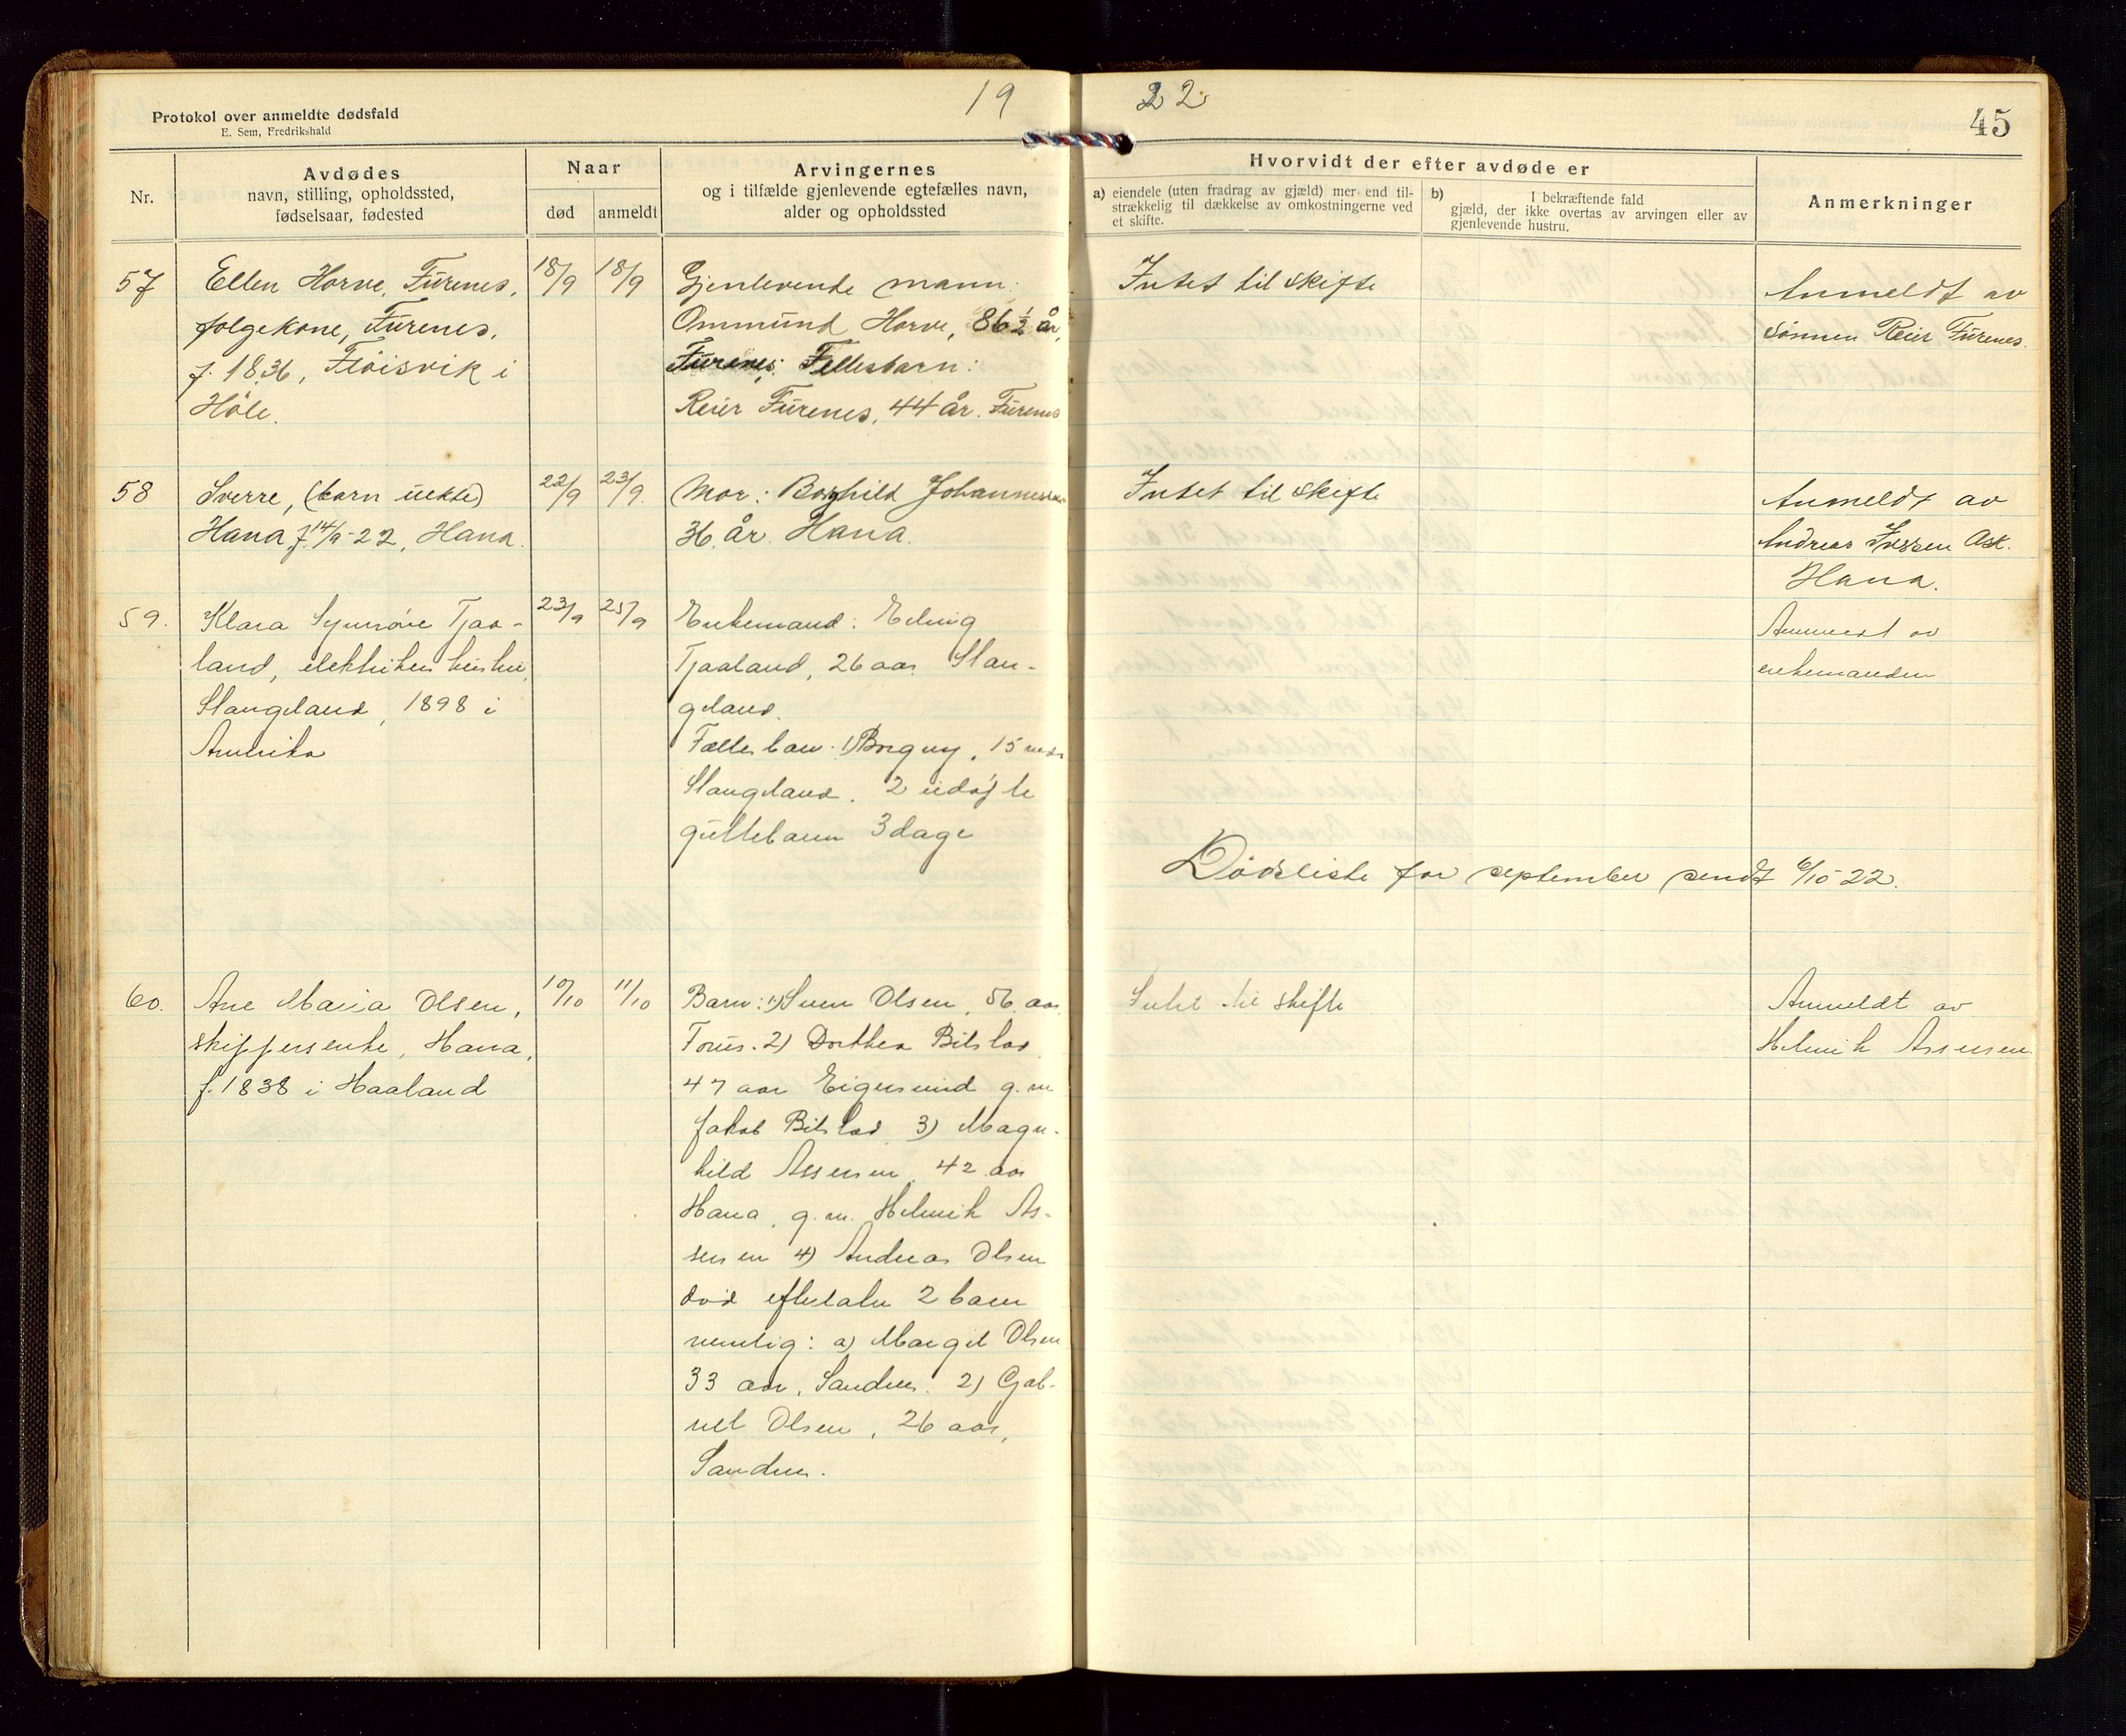 Protokol over anmeldte dødsfald
E. Sem, Fredrikshald
19
22
45
Nr.
Avdødes
navn, stilling, opholdssted,
fødselsaar, fødested
Naar
død
anmeldt
Arvingernes
og i tilfælde gjenlevende egtefælles navn,
alder og opholdssted
Hvorvidt der efter avdøde er
a) eiendele (uten fradrag av gjæld) mer end til-
strækkelig til dækkelse av omkostningerne ved
et skifte.
b) I bekræftende fald
gjæld, der ikke overtas av arvingen eller av
gjenlevende hustru.
Anmerkninger
57
Ellen Horve, Furenes,
folgekone, Furenes.
f. 1836, Fløisvik i
Höle.
18/9
18/9
Gjenlevende mann:
Ommund Horve, 86 1/2 år,
Furenes. Fellesbarn:
Reier Furenes, 44 år. Furenes
Intet til skifte
Anmeldt av
sönnen Reier Furenes.
58
Sverre, (barn uekte)
Hana f. 14/9-22, Hana.
22/9
23/9.
Mor: Borghild Johannessen
36 år Hana.
Intet til skifte
Anmeldt av
Andreas Ask.
Hana.
59.
Klara Synnøve Tjaa-
land, elektrikers hustru,
Slangeland, 1898 i
Amerika
23/9
25/9
Enkemand: Erling
Tjaaland, 26 aar Slan-
geland.
Fælles barn: 1) Borgny, 15 mdr
Slangeland. 2 udøpte
guttebarn 3 dage
Anmeldt av
enkemanden
Dödsliste for september sendt 6/10 22.
60.
Ane Maria Olsen,
skippersenke, Hana,
f. 1838 i Haaland
10/10
11/10
Barn: 1) Sven Olsen, 56 aar
Torus. 2) Dorthea Bilstad
47 aar Eigersund g.m
Jakob Bilstad 3) Magn-
hild Assersen, 42 aar
Hana, g.m. Helmik As-
sersen 4) Andreas Olsen
død efterlater 2 barn
nemlig: a) Margit Olsen
33 aar, Sandnes. 2) Gab-
riel Olsen, 26 aar,
Sandnes.
Intet til skifte
Anmeldt av
Helmik Assersen